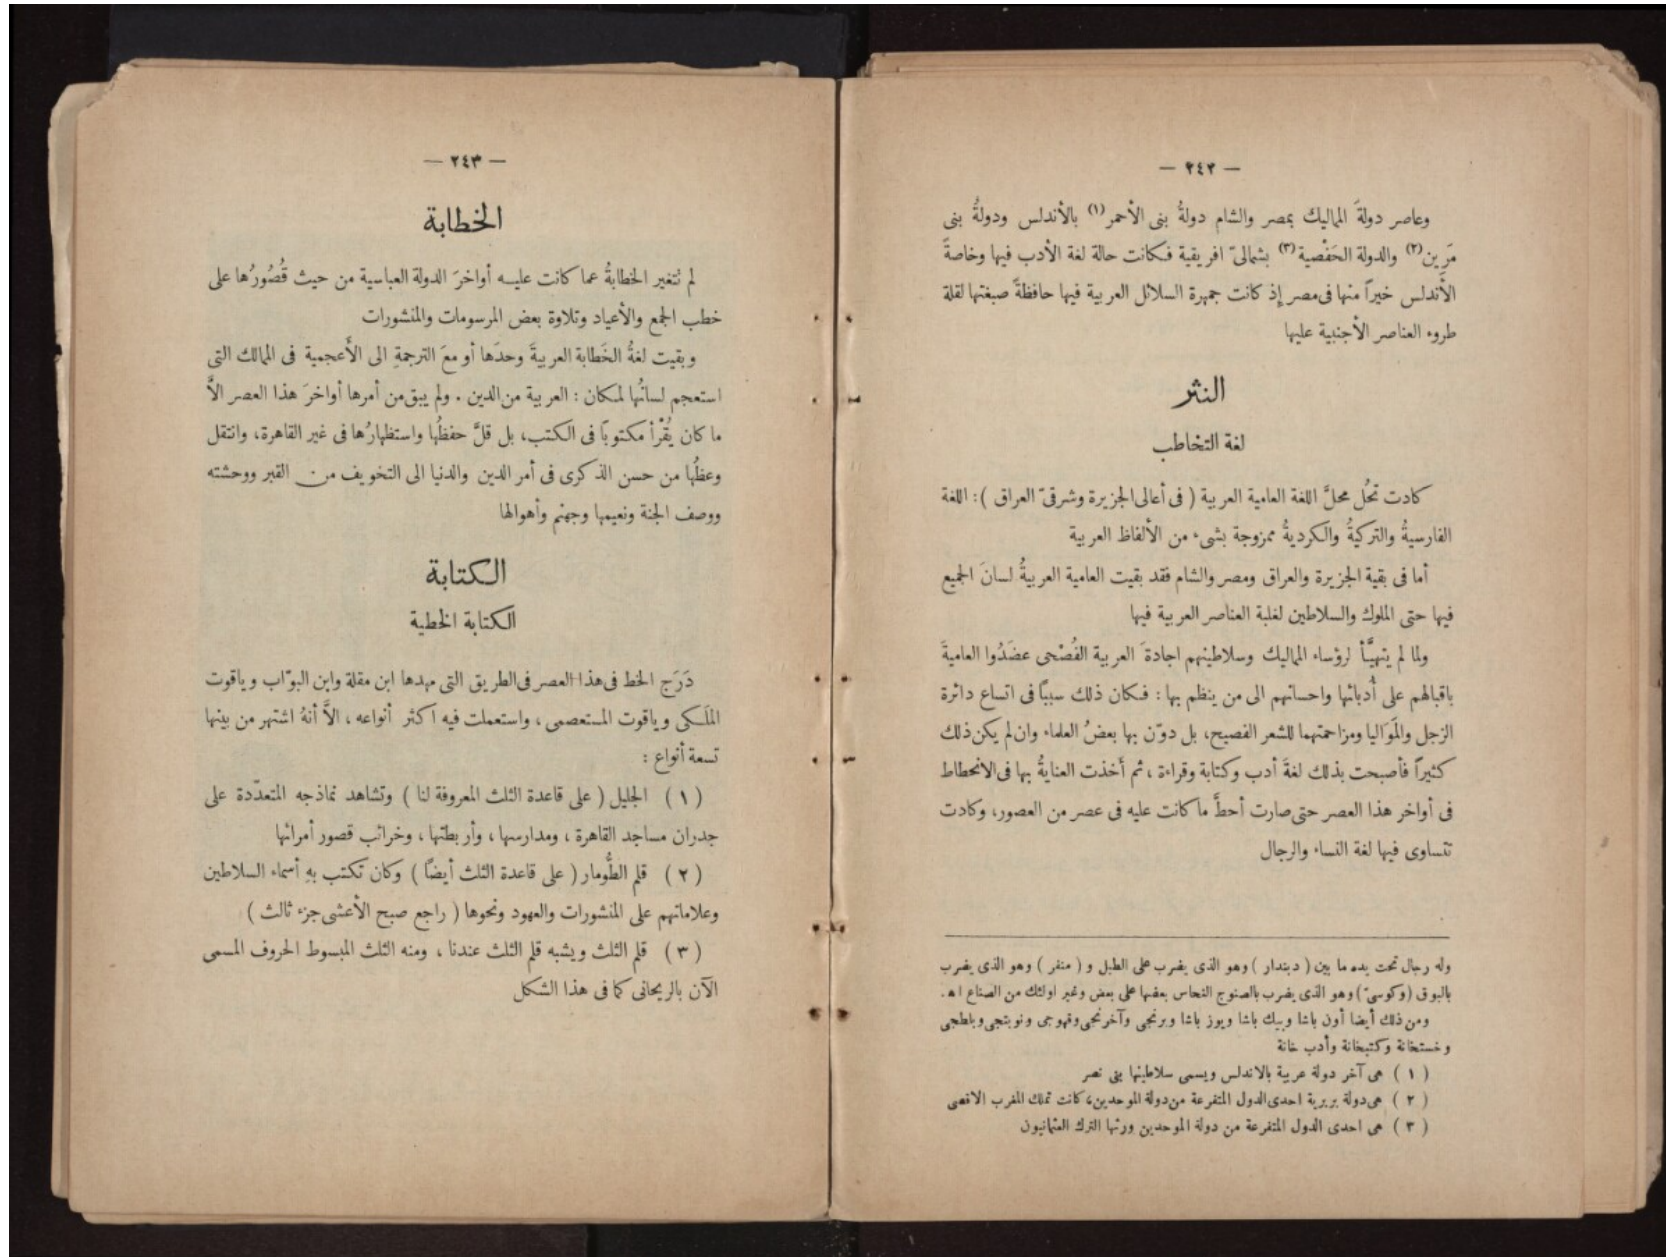 — ٢٤٢ —
وعاصر دولةَ المماليك بمصر والشام دولةُ بنى الأحمر (١) بالأندلس ودولةُ بنى
مَرِين (٢) والدولة الحَفْصية (٣) بشمالىّ افريقية فكانت حالة لغة الأدب فيها وخاصةً
الأندلس خيراً منها فى مصر إذ كانت جمهرة السلائل العربية فيها حافظةً صبغتها لقلة
طروء العناصر الأجنبية عليها
النثر
لغة التخاطب
كادت تحُل محلَّ اللغة العامية العربية ( فى أعالى الجزيرة وشرقىّ العراق ) : اللغة
الفارسيةُ والتركيةُ والكرديةُ ممزوجة بشىء من الألفاظ العربية
أما فى بقية الجزيرة والعراق ومصر والشام فقد بقيت العامية العربيةُ لسانَ الجميع
فيها حتى الملوك والسلاطين لغلبة العناصر العربية فيها
ولما لم يتهيَّأ لرؤساء المماليك وسلاطينهم اجادة العربية الفُصْحى عضَدُوا العاميةَ
باقبالهم على أُدبائها واحسانهم الى من ينظم بها : فكان ذلك سبباً فى اتساع دائرة
الزجل والمَوَاليا ومزاحمتهما للشعر الفصيح، بل دوّن بها بعضُ العلماء وان لم يكن ذلك
كثيراً فأصبحت بذلك لغةَ أدب وكتابة وقراءة ، ثم أخذت العنايةُ بها فى الانحطاط
فى أواخر هذا العصر حتى صارت أحطَّ ما كانت عليه فى عصر من العصور، وكادت
تتساوى فيها لغة النساء والرجال
وله رجال تحت يده ما بين ( دبندار ) وهو الذى يضرب على الطبل و ( منفر ) وهو الذى يضرب
بالبوق (وكوسىّ) وهو الذى يضرب بالصنوج النحاس بعضها على بعض وغير اولئك من الصناع ا ه .
ومن ذلك أيضا أون باشا وبيك باشا ويوز باشا وبرنجى وآخرنجى وقهوجى ونوبتجى وبلطجى
وخستخانة وكتبخانة وأدب خانة
( ١ ) هى آخر دولة عربية بالاندلس ويسمى سلاطينها بنى نصر
( ٢ ) هى دولة بربرية احدى الدول المتفرعة من دولة الموحدين، كانت تملك المغرب الاقصى
( ٣ ) هى احدى الدول المتفرعة من دولة الموحدين ورثها الترك العثمانيون
— ٢٤٣ —
الخطابة
لم تتغير الخطابةُ عما كانت عليه أواخرَ الدولة العباسية من حيث قُصُورُها على
خطب الجمع والأعياد وتلاوة بعض المرسومات والمنشورات
وبقيت لغةُ الخَطابة العربيةَ وحدَها أو معَ الترجمةِ الى الأَعجمية فى الممالك التى
استعجم لسانُها لمكان : العربية من الدين . ولم يبق من أمرها أواخرَ هذا العصر الاَّ
ما كان يُقْرأ مكتوباً فى الكتب، بل قلَّ حفظُها واستظهارُها فى غير القاهرة، وانتقل
وعظُها من حسن الذكرى فى أمر الدين والدنيا الى التخويف من القبر ووحشته
ووصف الجنة ونعيمها وجهنم وأهوالها
الكتابة
الكتابة الخطية
دَرَج الخط فى هذا العصر فى الطريق التى مهدها ابن مقلة وابن البوّاب وياقوت
الملَكى وياقوت المستعصمى ، واستعملت فيه اكثر أنواعه ، الاَّ أنهُ اشتهر من بينها
تسعة أنواع :
( ١ ) الجليل ( على قاعدة الثلث المعروفة لنا ) وتشاهد نماذجه المتعدّدة على
جدران مساجد القاهرة ، ومدارسها ، وأربطتها ، وخرائب قصور أمرائها
( ٢ ) قلم الطُّومار ( على قاعدة الثلث أيضًا ) وكان تكتب بهِ أسماء السلاطين
وعلاماتهم على المنشورات والعهود ونحوها ( راجع صبح الأعشى جزء ثالث )
( ٣ ) قلم الثلث ويشبه قلم الثلث عندنا ، ومنه الثلث المبسوط الحروف المسمى
الآن بالريحانى كما فى هذا الشكل